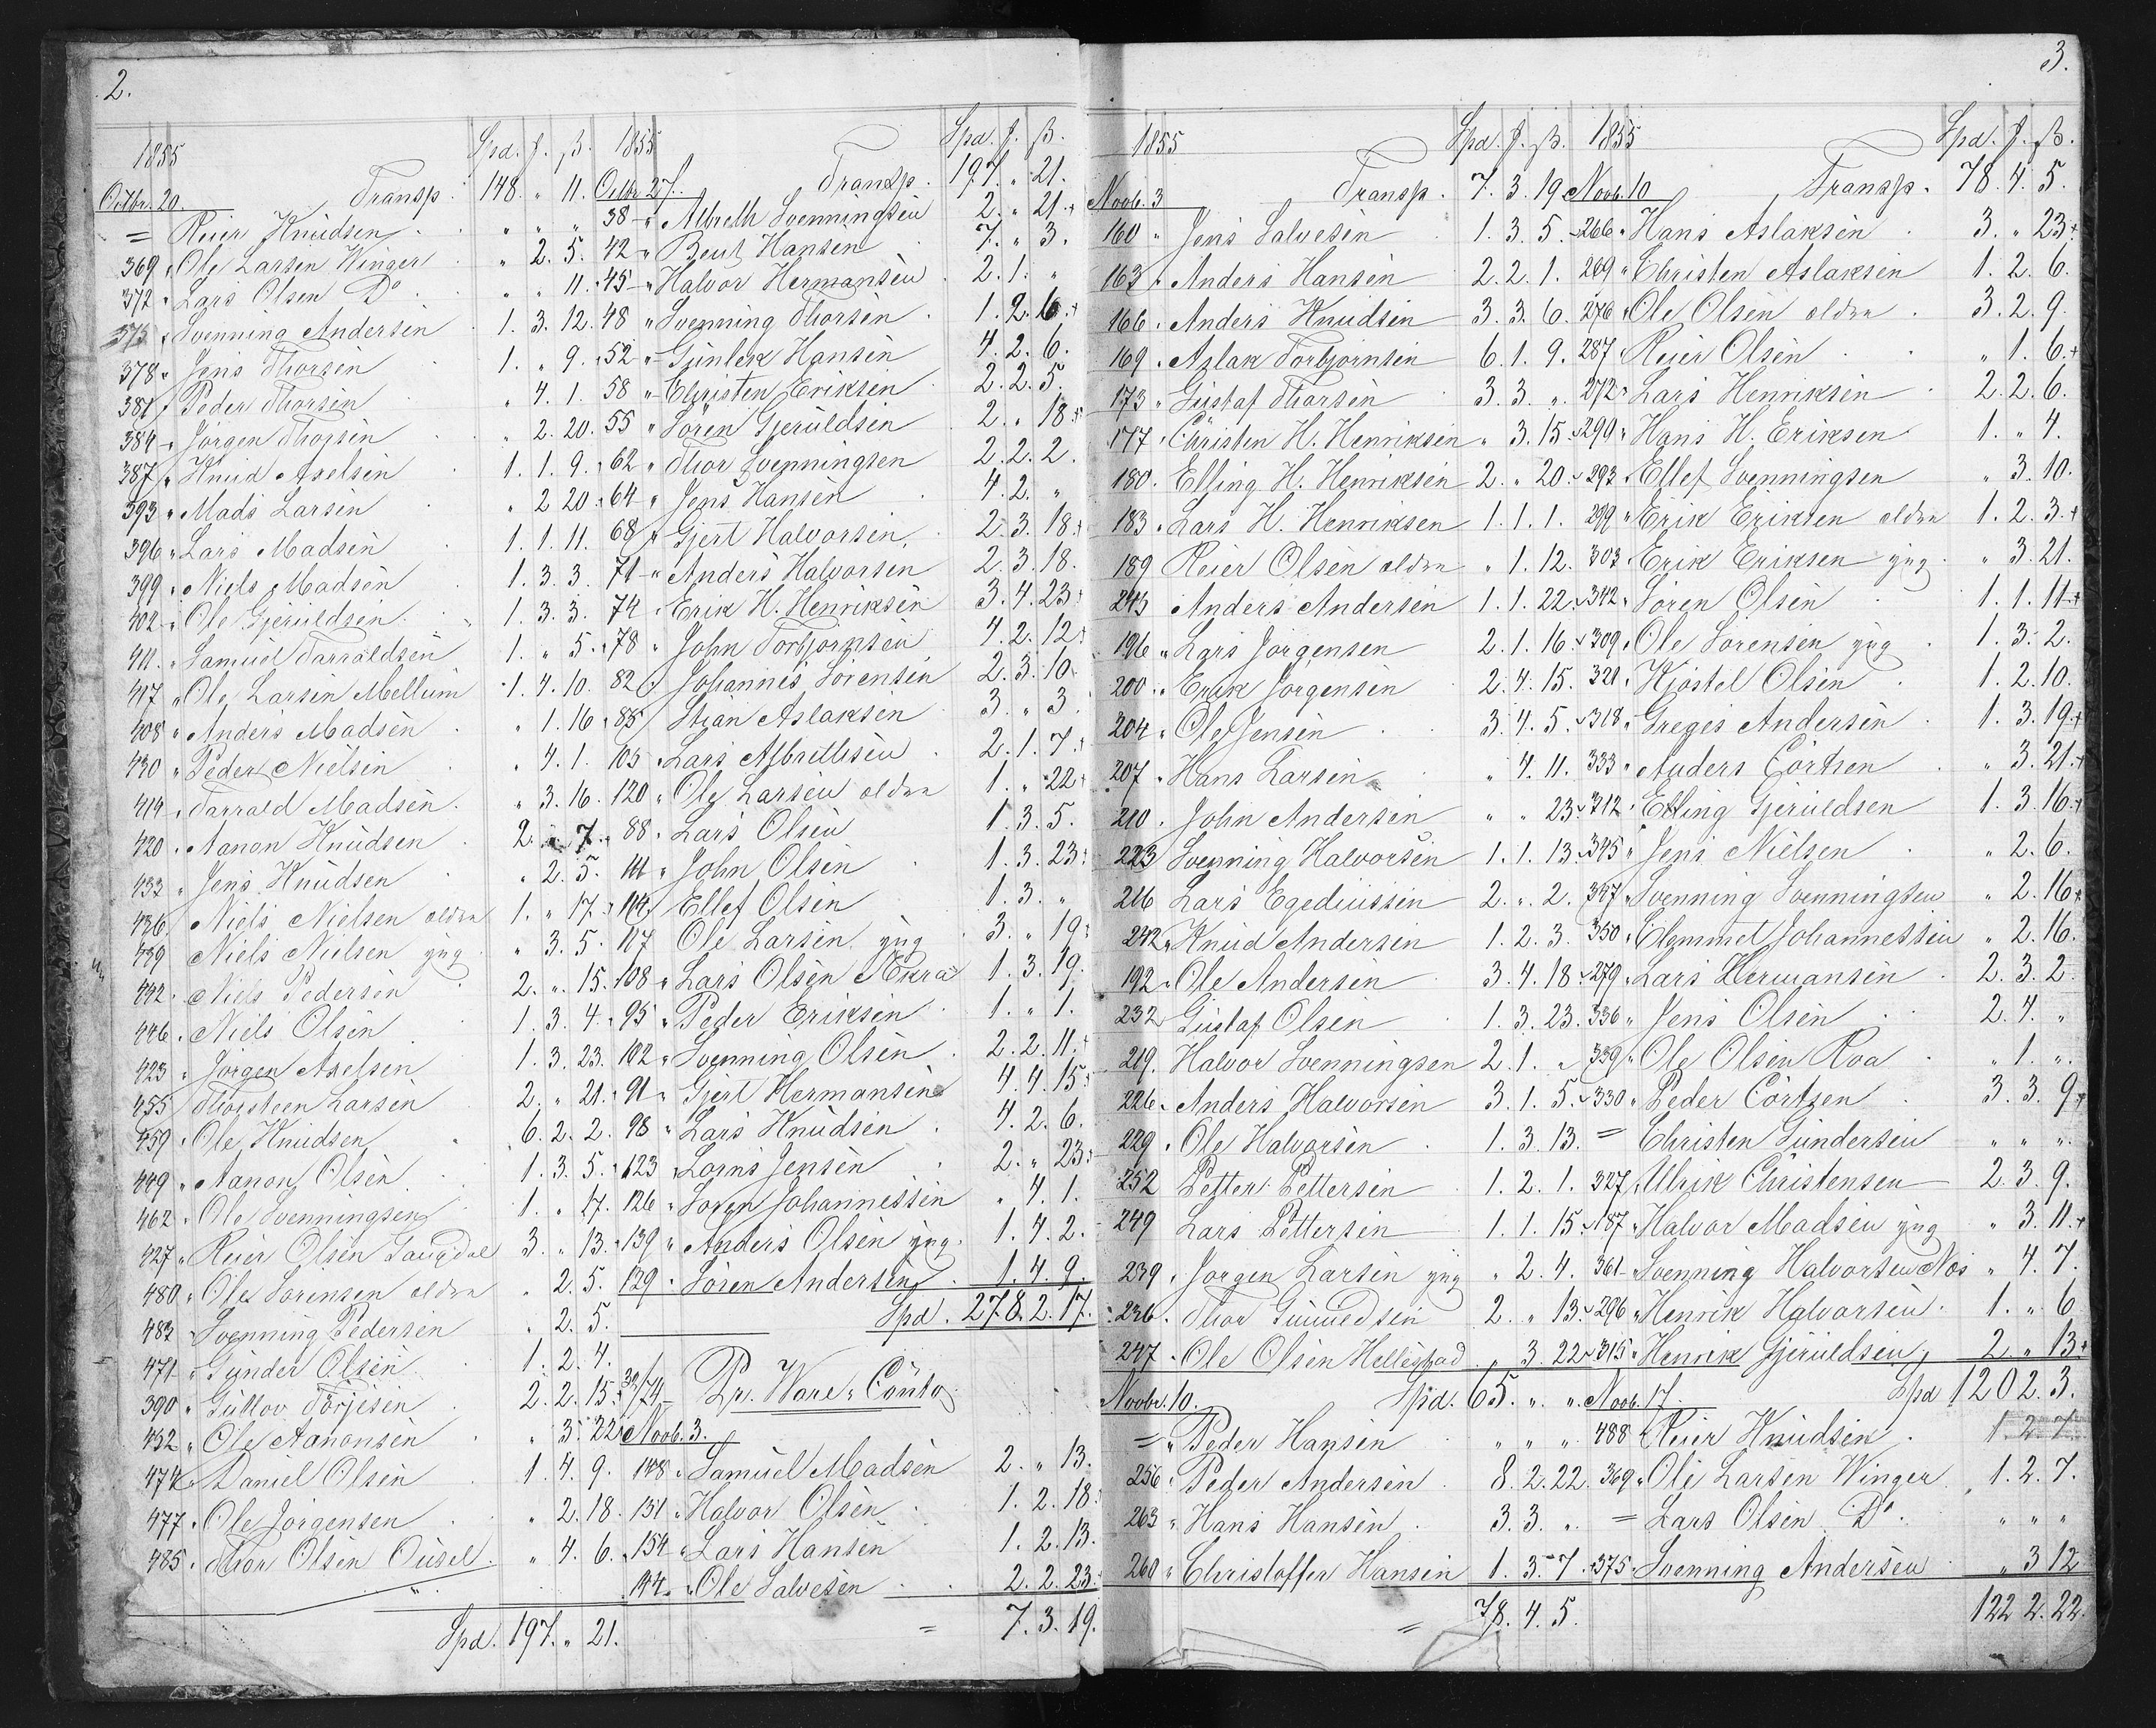 2.
1855 Spd. J. ß.
Octbr. 20. Transp. 148. " 11.
= Reier Knudsen " " "
369 " Ole Larsen Winger " 2. 5.
372 " Lars Olsen Do " " 11.
375 " Svenning Andersen 1. 3. 12.
378 " Jens Thorsen 1. " 9.
381 " Peder Thorsen " 4. 1.
384 " Jörgen Thorsen " 2. 20.
387 " Knud Axelsen 1. 1. 9.
393 " Mads Larsen " 2 20
396 " Lars Madsen 1. 1. 11.
399 " Niels Madsen 1. 3. 3.
402 " Ole Gjeruldsen 1. 3. 3.
411 " Samuel Tarraldsen 1. " 5.
417 " Ole Larsen Mellum 1. 4. 10.
408 " Anders Madsen " 1. 16
430 " Peder Nielsen " 4. 1.
414 " Tarrald Madsen " 3. 16.
420 " Aanon Knudsen 2. " 7.
433 " Jens Knudsen " 2. 5.
436 Niels Nielsen eldre 1. " 17.
439 Niels Nielsen yng " 3. 5.
442 Niels Pedersen 2. " 15.
446 Niels Olsen 1. 3. 4.
423 " Jörgen Axelsen 1. 3. 23.
455 Thorsteen Larsen 2. " 21.
459 " Ole Knudsen 6. 2. 2.
449 " Aanon Olsen 1. 3. 5.
462 " Ole Svenningsen 1. " 17.
427 " Reier Olsen Saugdal 3. " 13.
480 " Ole Sörensen eldre " 2. 5.
483 " Svenning Pedersen " 2. 5.
471 " Gunder Olsen 1. 2. 4.
390 " Gullov Törjesen 2. 2. 15.
452 " Ole Aanonsen " 3. 22
474 Daniel Olsen 1. 4. 9.
477 " Ole Jörgensen " 2. 18.
485 " Thor Olsen Ousel " 4. 6.
Spd. 197. " 21.
1855 Spd. J. ß.
Octbr 27. Transp. 197. " 21.
38 " Albreth Svenningsen 2. " 21.
42 " Bent Hansen 7. " 3.
45 " Halvor Hermansen 2. 1. "
48 " Svenning Thorsen 1. 2. 6.
52 " Gunlek Hansen 4. 2. 6.
58 " Christen Eriksen 2. 2. 5.
55 " Sören Gjeruldsen 2. " 18
62 " Thor Svenningsen 2. 2. 2.
64 " Jens Hansen 4. 2. "
68 " Gjert Halvorsen 2. 3. 18.
71 " Anders Halvorsen 2. 3. 18.
74 " Erik H. Henriksen 3. 4. 23
78 " John Torbjornsen 4. 2. 12
82 " Johannes Sörensen 2. 3. 10
85 Stian Aslaksen 3. " 3.
105 " Lars Albrethsen 2. 1. 7.
120 " Ole Larsen eldre 1. " 22
88 " Lars Olsen 1. 3. 5.
111 " John Olsen 1. 3. 23
114 Ellef Olsen 1. 3. "
117 Ole Larsen yng 3. " 19
108 " Lars Olsen Aekra 1. 3. 19.
95 " Peder Eriksen 1. " 1.
102 " Svenning Olsen 2. 2. 11.
91 " Gjert Hermansen 4. 4. 15
98 " Lars Knudsen 4. 2. 6.
123 Lorns Jensen 2. " 23
126 " Soren Johannessen " 4. 1.
139 " Anders Olsen yng. 1. 4. 2.
129 " Sören Andersen 1. 4. 9.
Spd. 278. 2. 17.
Pr. Ware-Conto
Novb. 3.
148 " Samuel Madsen 2. " 13.
151 " Halvor Olsen 1. 2. 18
154 " Lars Hansen 1. 2. 13.
144 " Ole Salvesen 2. 2. 23
= 7. 3. 19.
3.
1855 Spd. J. ß.
Novb. 3 Transp. 7. 3. 19
160 " Jens Salvesen 1. 3. 5.
163 " Anders Hansen 2. 2. 1.
166 " Anders Knudsen 3. 3. 6.
169 " Aslak Torbjornsen 6. 1. 9.
173 " Gustaf Thorsen 3. 3. "
177 " Christen H. Henriksen " 3. 15
180. Elling H. Henriksen 2. " 20
183 " Lars H. Henriksen 1. 1. 1.
189 Reier Olsen eldre " 1. 12.
245 Anders Andersen 1. 1. 22
196 " Lars Jörgensen 2. 1. 16
200 " Erik Jorgensen 2. 4. 15.
204 " Ole Jensen 3. 4. 5.
207 " Hans Larsen " 4. 11.
210 " John Andersen " " 23
223 Svenning Halvorsen 1. 1. 13
216 Lars Egediussen 2. " 2.
242 " Knud Andersen 1. 2. 3.
192 " Ole Andersen 3. 4. 18
232 Gustaf Olsen 1. 3. 23.
219. Halvor Svenningsen 2. 1. "
226 " Anders Halvorsen 3. 1. 5.
229 " Ole Halvorsen 1. 3. 13.
252 Petter Pettersen 1. 2. 1.
249 Lars Pettersen 1. 1. 15
239 " Jorgen Larsen yng " 2. 4.
236 " Thor Gumedsen 2. " 13
247 " Ole Olsen Hellestad " 3. 22
Novbr. 10. Spd. 65. " "
= " Peder Hansen " " "
256 " Peder Andersen 8. 2. 22.
263 " Hans Hansen 3. 3. "
260 " Christoffer Hansen 1. 3. 7.
= 78. 4. 5.
1855 Spd. J. ß.
Novb. 10 Transp. 78. 4. 5.
266 " Hans Aslaksen 3. " 23
269 " Christen Aslaksen 1. 2. 6.
276 " Ole Olsen eldre 3. 2. 9.
287 " Reier Olsen " 1. 6.
272 " Lars Henriksen 2. 2. 6.
290 " Hans H. Eriksen 1. " 4.
293 " Ellef Svenningsen " 3. 10.
299 " Erik Eriksen eldre 1. 2. 3.
303 " Erik Eriksen yng " 3. 21.
342 " Sören Olsen 1. 1. 11
309 " Ole Sörensen yng 1. 3. 2.
321 " Kjöstel Olsen 1. 2. 10.
318 " Greges Andersen 1. 3. 19
333 " Anders Cörtsen " 3. 21.
312 " Elling Gjeruldsen 1. 3. 16
345 " Jens Nielsen " 2. 6.
347 " Svenning Svenningsen " 2. 16
350 " Clemmet Johannessen " 2. 16.
279 " Lars Hermansen 2. 3. 2
336 " Jens Olsen 2. 4. "
339 " Ole Olsen Roa " 1. "
330 " Peder Cörtsen 3. 3. 9
= Christen Gundersen " " "
327 " Ulrik Christensen 2. 3. 9.
187 " Halvor Madsen yng " 3. 11.
361 " Svenning Halvorsen Nös " 4. 7.
296 " Henrik Halvorsen 1. " 6
315 " Henrik Gjeruldsen 2 " 13
Novb. 17. Spd 120 2. 3.
488 Reier Knudsen 1. 2 7
369 " Ole Larsen Winger 1. 2. 7.
= Lars Olsen Do " " "
375 " Svenning Andersen " 3 12
122 2. 22.